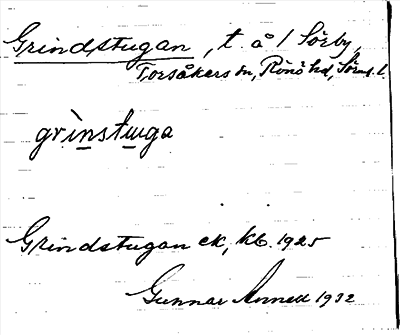 Grindstugan, t. å 1 Sörby,
Torsåkers sn, Rönö hd, Sörml. l.
grìnstuga
Grindstugan ek, kb. 1925
Gunnar 1932